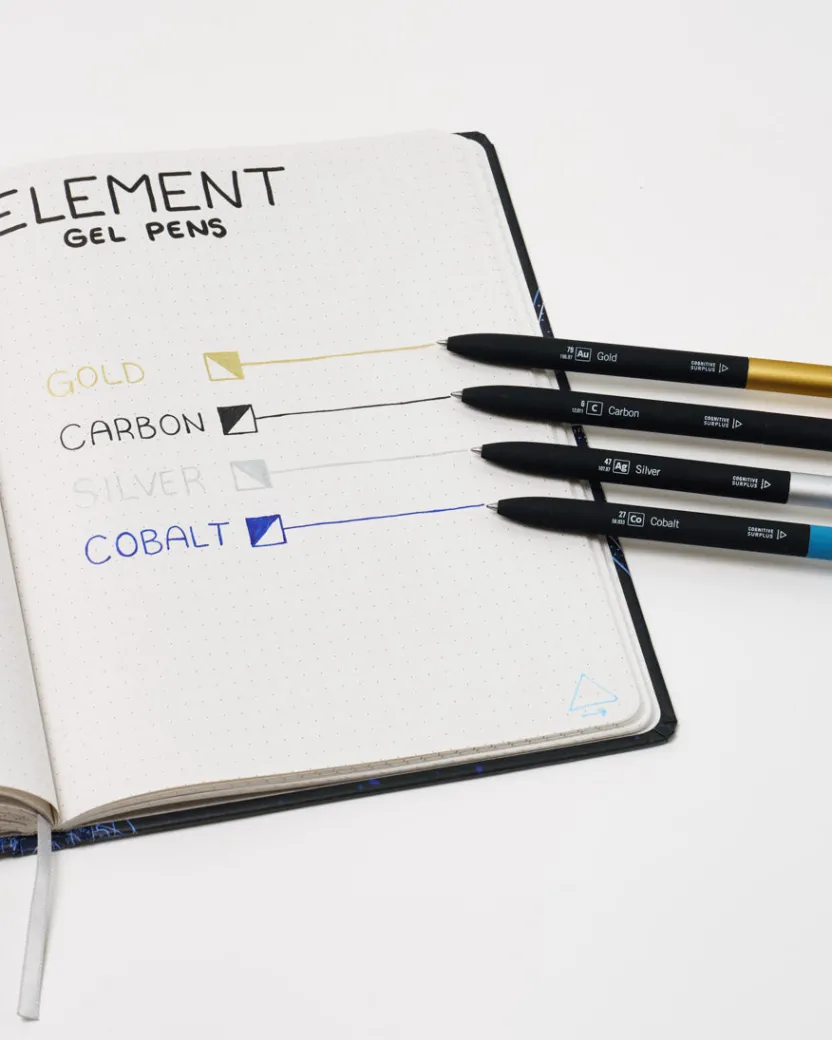 ELEMENT
GEL PENS
GOLD
CARBON
SILVER
COBALT
79
196.97
Au Gold
COGNITIVE
SURPLUS
6
12.011
C Carbon
COGNITIVE
SURPLUS
47
107.87
Ag Silver
COGNITIVE
SURPLUS
27
58.933
Co Cobalt
COGNITIVE
SURPLUS